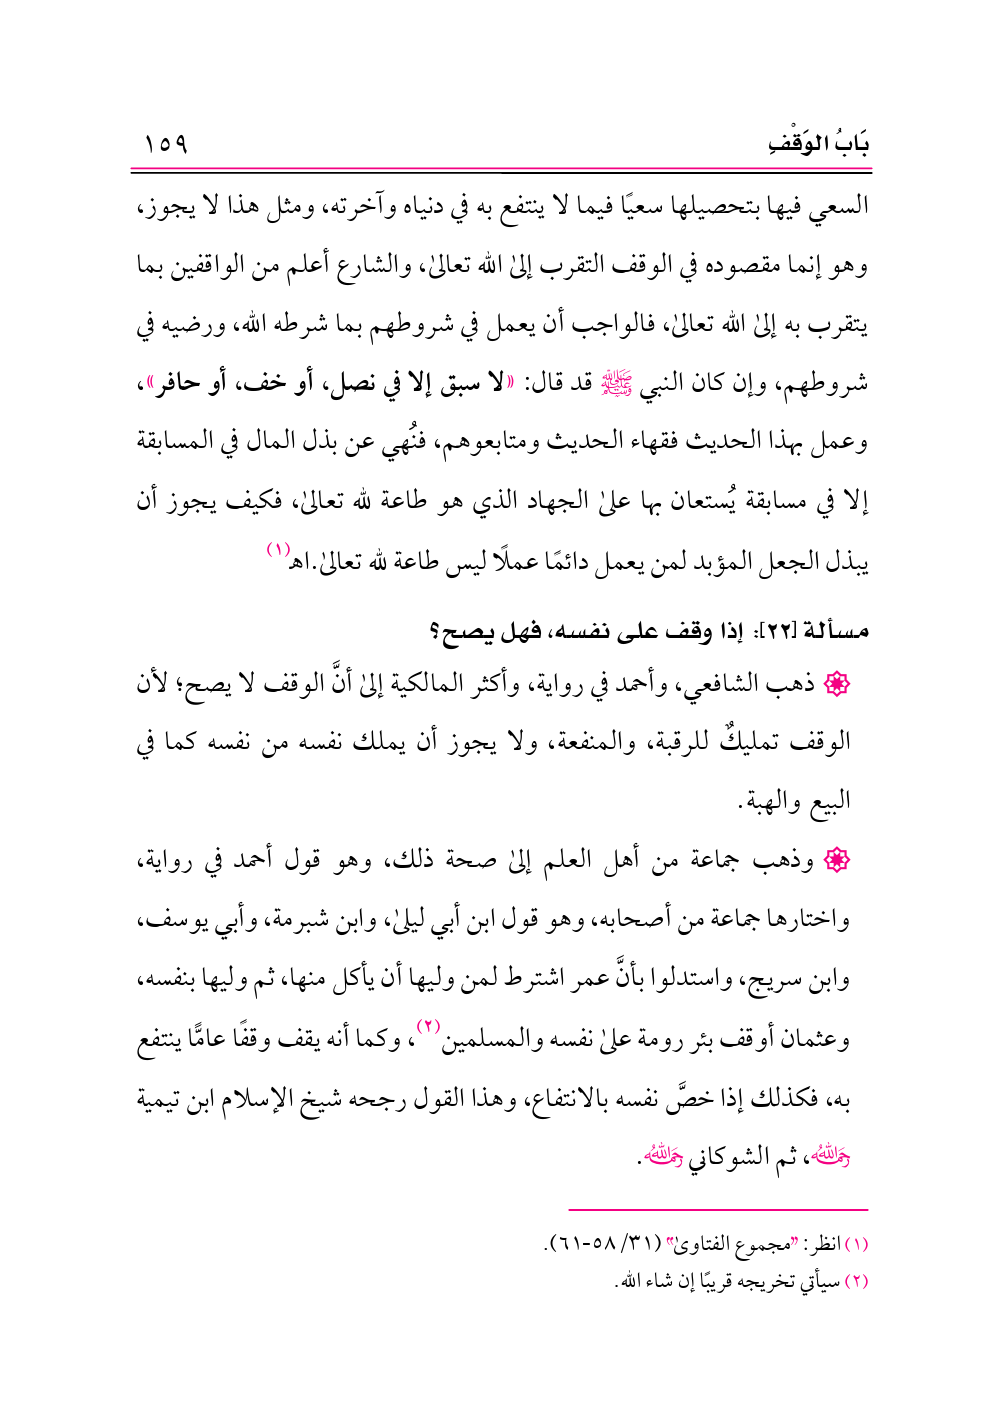 بَابُ الوَقْفِ ١٥٩
السعي فيها بتحصيلها سعيًا فيما لا ينتفع به في دنياه وآخرته، ومثل هذا لا يجوز،
وهو إنما مقصوده في الوقف التقرب إلىٰ الله تعالىٰ، والشارع أعلم من الواقفين بما
يتقرب به إلىٰ الله تعالىٰ، فالواجب أن يعمل في شروطهم بما شرطه الله، ورضيه في
شروطهم، وإن كان النبي ﷺ قد قال: «لا سبق إلا في نصل، أو خف، أو حافر»،
وعمل بهذا الحديث فقهاء الحديث ومتابعوهم، فنُهي عن بذل المال في المسابقة
إلا في مسابقة يُستعان بها علىٰ الجهاد الذي هو طاعة لله تعالىٰ، فكيف يجوز أن
يبذل الجعل المؤبد لمن يعمل دائمًا عملًا ليس طاعة لله تعالىٰ.اهـ(١)
مسألة [٢٢]: إذا وقف على نفسه، فهل يصح؟
ذهب الشافعي، وأحمد في رواية، وأكثر المالكية إلىٰ أنَّ الوقف لا يصح؛ لأن
الوقف تمليكٌ للرقبة، والمنفعة، ولا يجوز أن يملك نفسه من نفسه كما في
البيع والهبة.
وذهب جماعة من أهل العلم إلىٰ صحة ذلك، وهو قول أحمد في رواية،
واختارها جماعة من أصحابه، وهو قول ابن أبي ليلىٰ، وابن شبرمة، وأبي يوسف،
وابن سريج، واستدلوا بأنَّ عمر اشترط لمن وليها أن يأكل منها، ثم وليها بنفسه،
وعثمان أوقف بئر رومة علىٰ نفسه والمسلمين(٢)، وكما أنه يقف وقفًا عامًّا ينتفع
به، فكذلك إذا خصَّ نفسه بالانتفاع، وهذا القول رجحه شيخ الإسلام ابن تيمية
رحمه الله، ثم الشوكاني رحمه الله.
(١) انظر: "مجموع الفتاوىٰ" (٣١/ ٥٨-٦١).
(٢) سيأتي تخريجه قريبًا إن شاء الله.